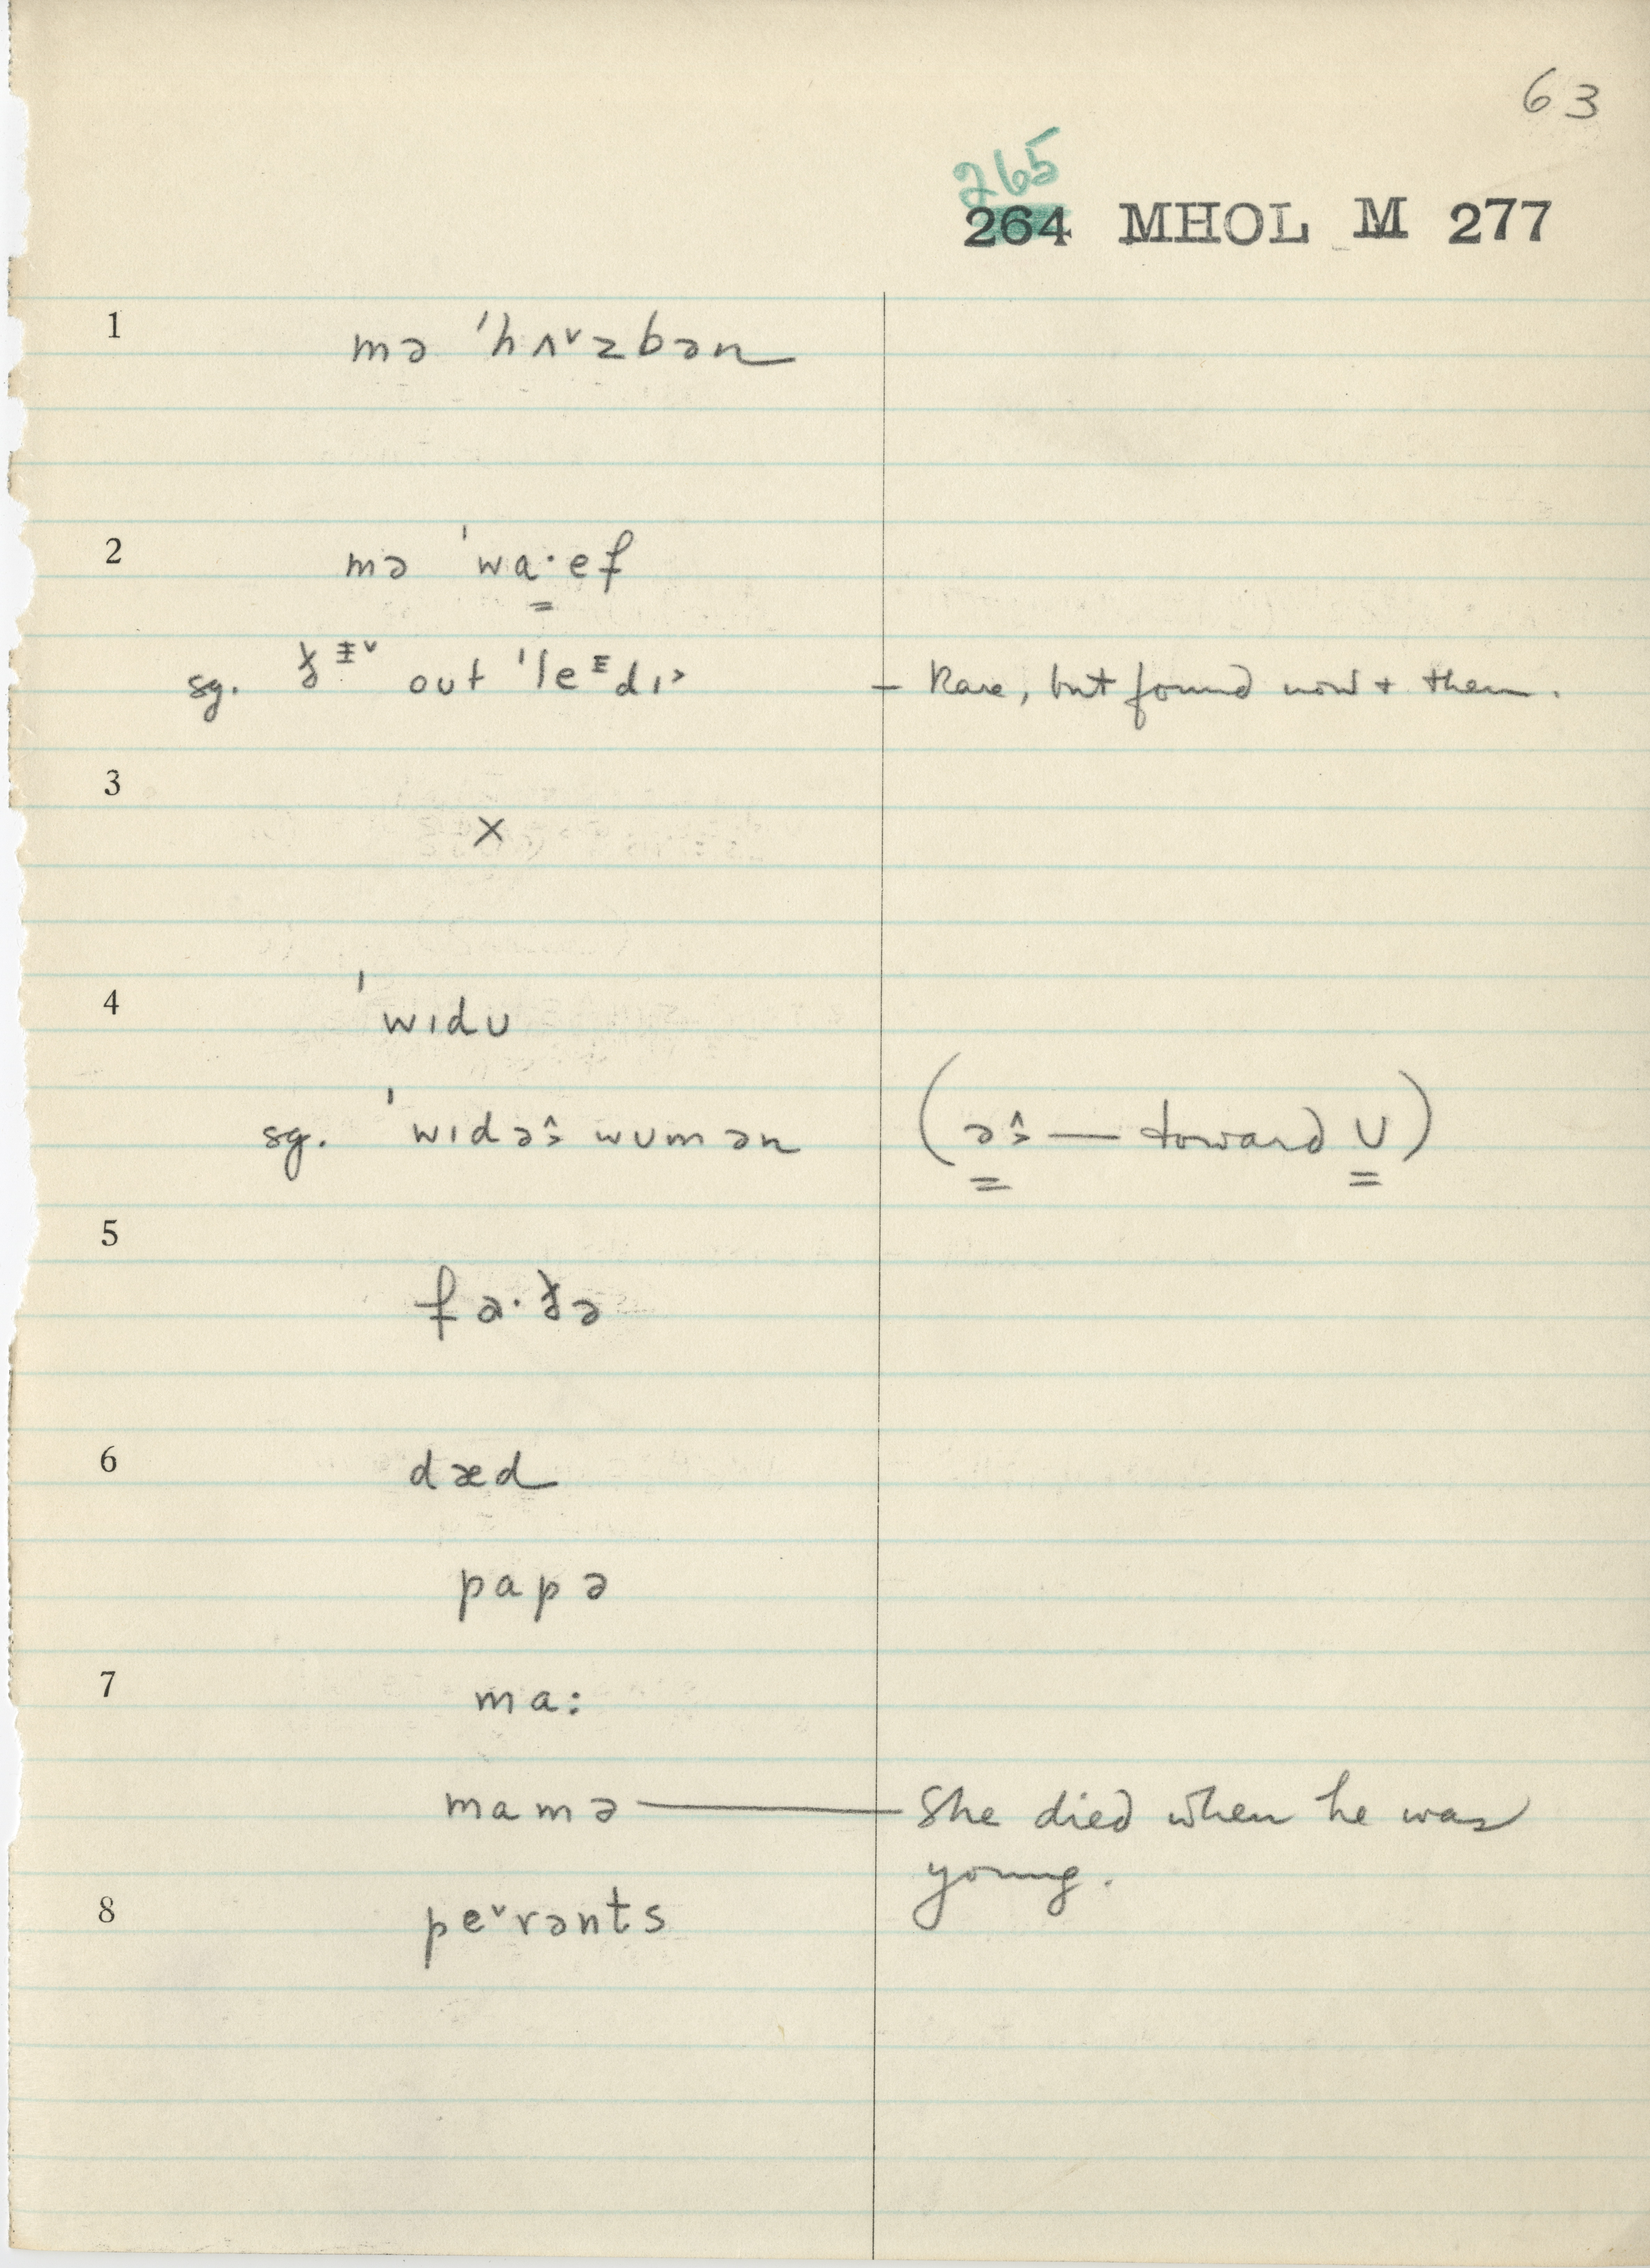 63
265
264 MHOL M 277
1 mə ˈhʌ˅zbən
2 mə ˈwa·ef
sg. out ˈle^ɛdɪ˃ – Rare, but found now + then.
3 ×
4 ˈwɪdʊ
sg. ˈwɪdə wʊmən ( — toward ʊ)
5 fa·ðə
6 dæd
papə
7 ma:
mamə — She died when he was
young.
8 pe˅rənts